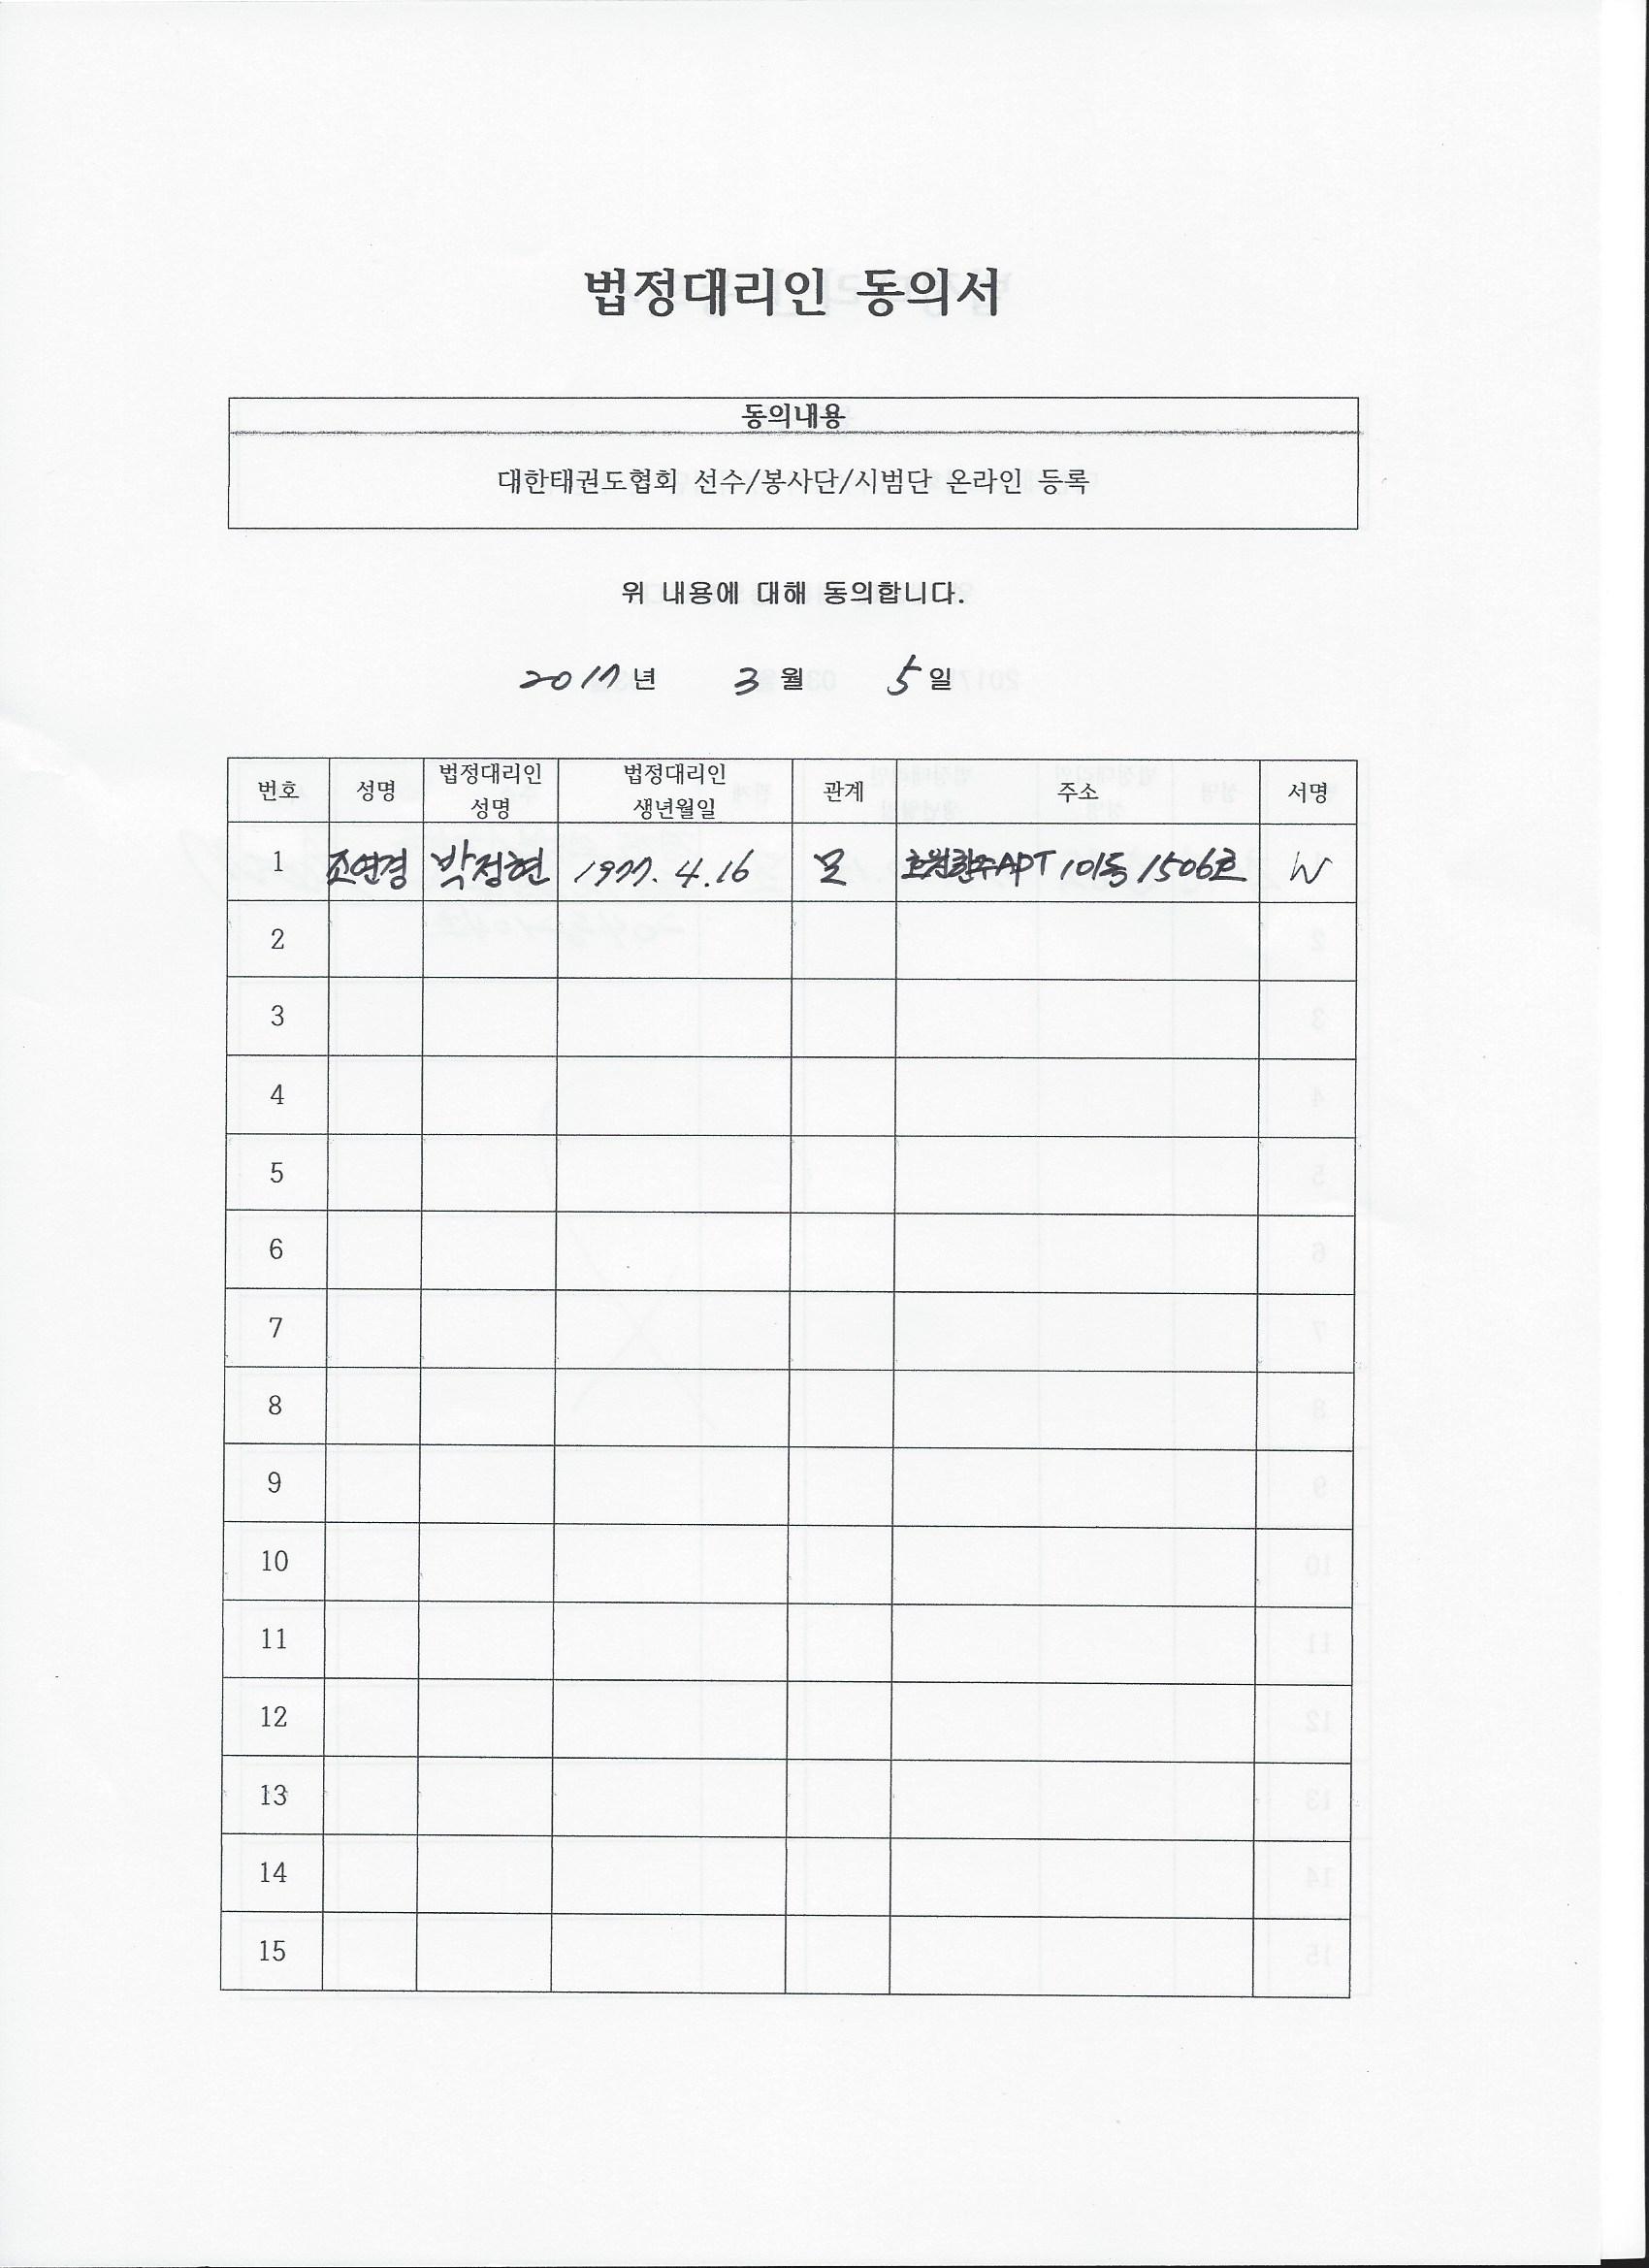 법정대리인 동의서
동의내용
대한태권도협회 선수/봉사단/시범단 온라인 등록
위 내용에 대해 동의합니다.
2017년 3월 5일
번호 성명 법정대리인 성명 법정대리인 생년월일 관계 주소 서명
1 조연경 박정현 1977. 4. 16 모 APT 101동 1506호
2
3
4
5
6
7
8
9
10
11
12
13
14
15